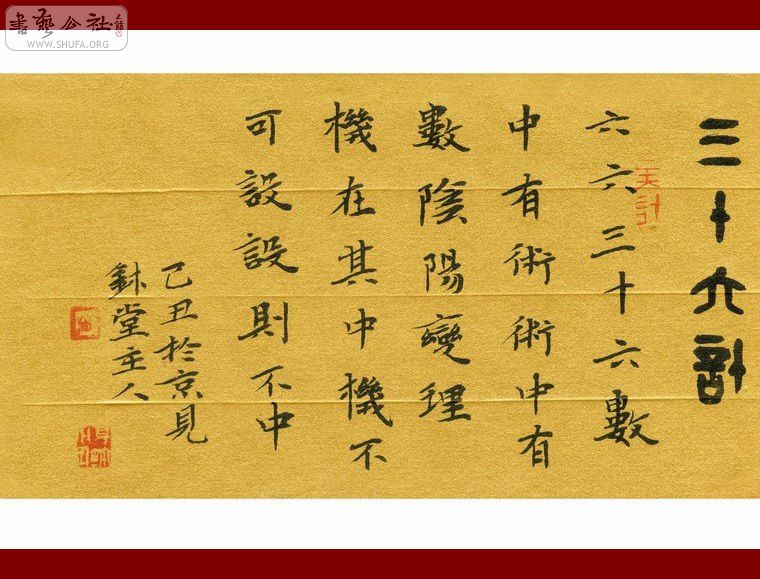 書藝公社
WWW.SHUFA.ORG
三十六計
六六三十六數
中有術術中有
數陰陽變理
機在其中機不
可設設則不中
己丑於京見
鉥堂主人